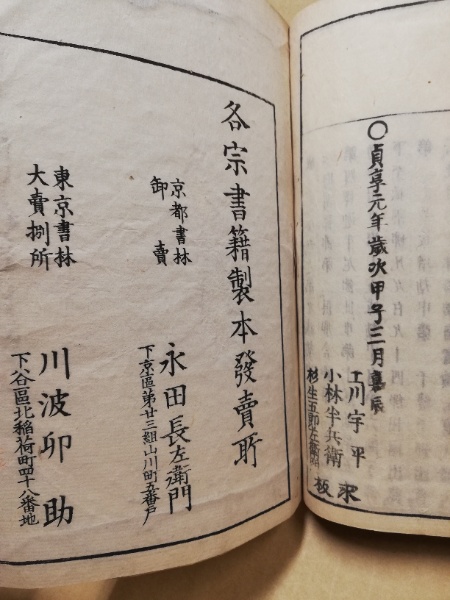 〇貞享元年歳次甲子三月辰
川宇平
小林半兵衛
杉生五郎左衛門
求板
各宗書籍製本發賣所
京都書林
卸賣
永田長左衛門
下京區第廿三組山川町五番戸
東京書林
大賣捌所
川波卯助
下谷區北稲荷町四十八番地